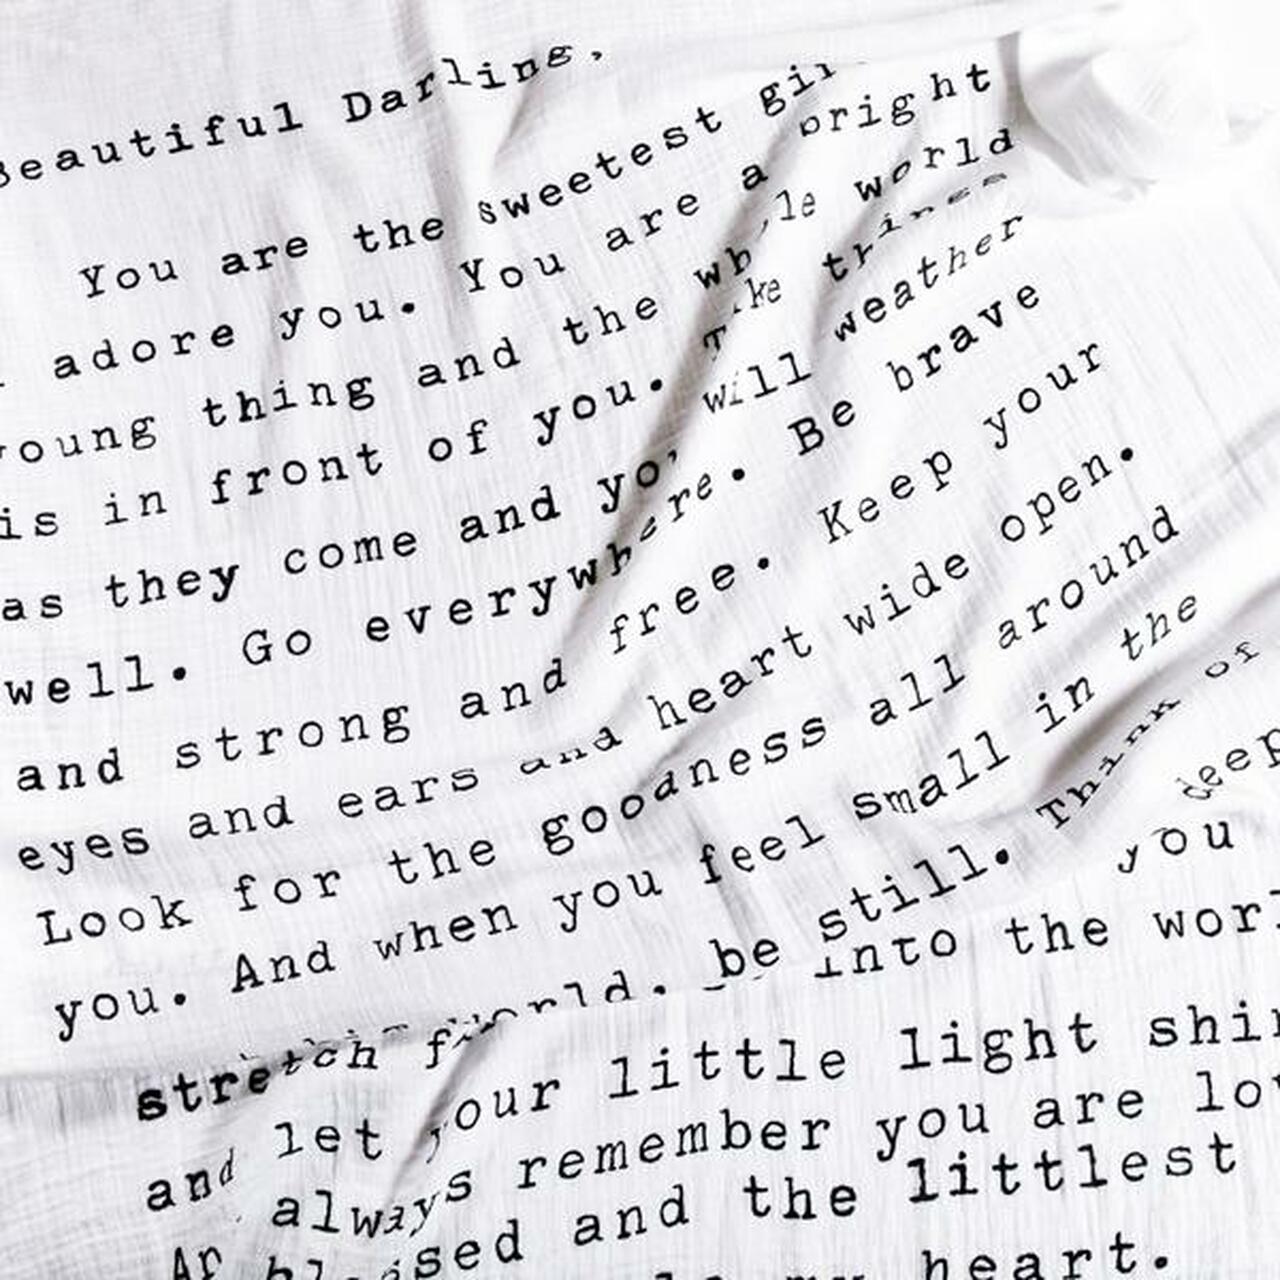 Beautiful Darling,
You are the sweetest
adore you. You are a bright
young thing and the whole world
is in front of you. Take things
as they come and you will weather
well. Go everywhere. Be brave
and strong and free. Keep your
eyes and ears and heart wide open.
Look for the goodness all around
you. And when you feel small in the
world, be still. Think of
deep
stretch into the
you
and let your little light
always remember you are
and the littlest
heart.